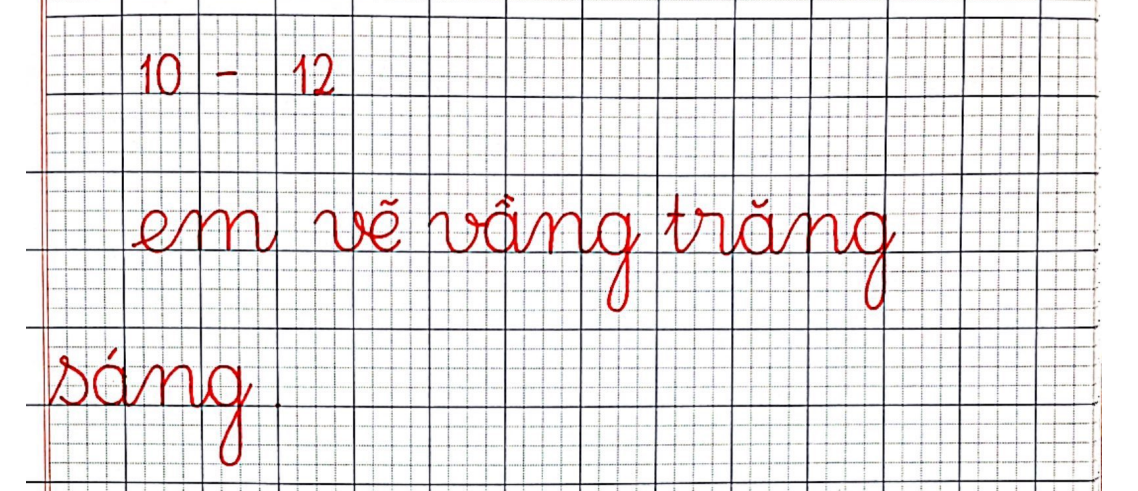 10 - 12
em vẽ vầng trăng
sáng.